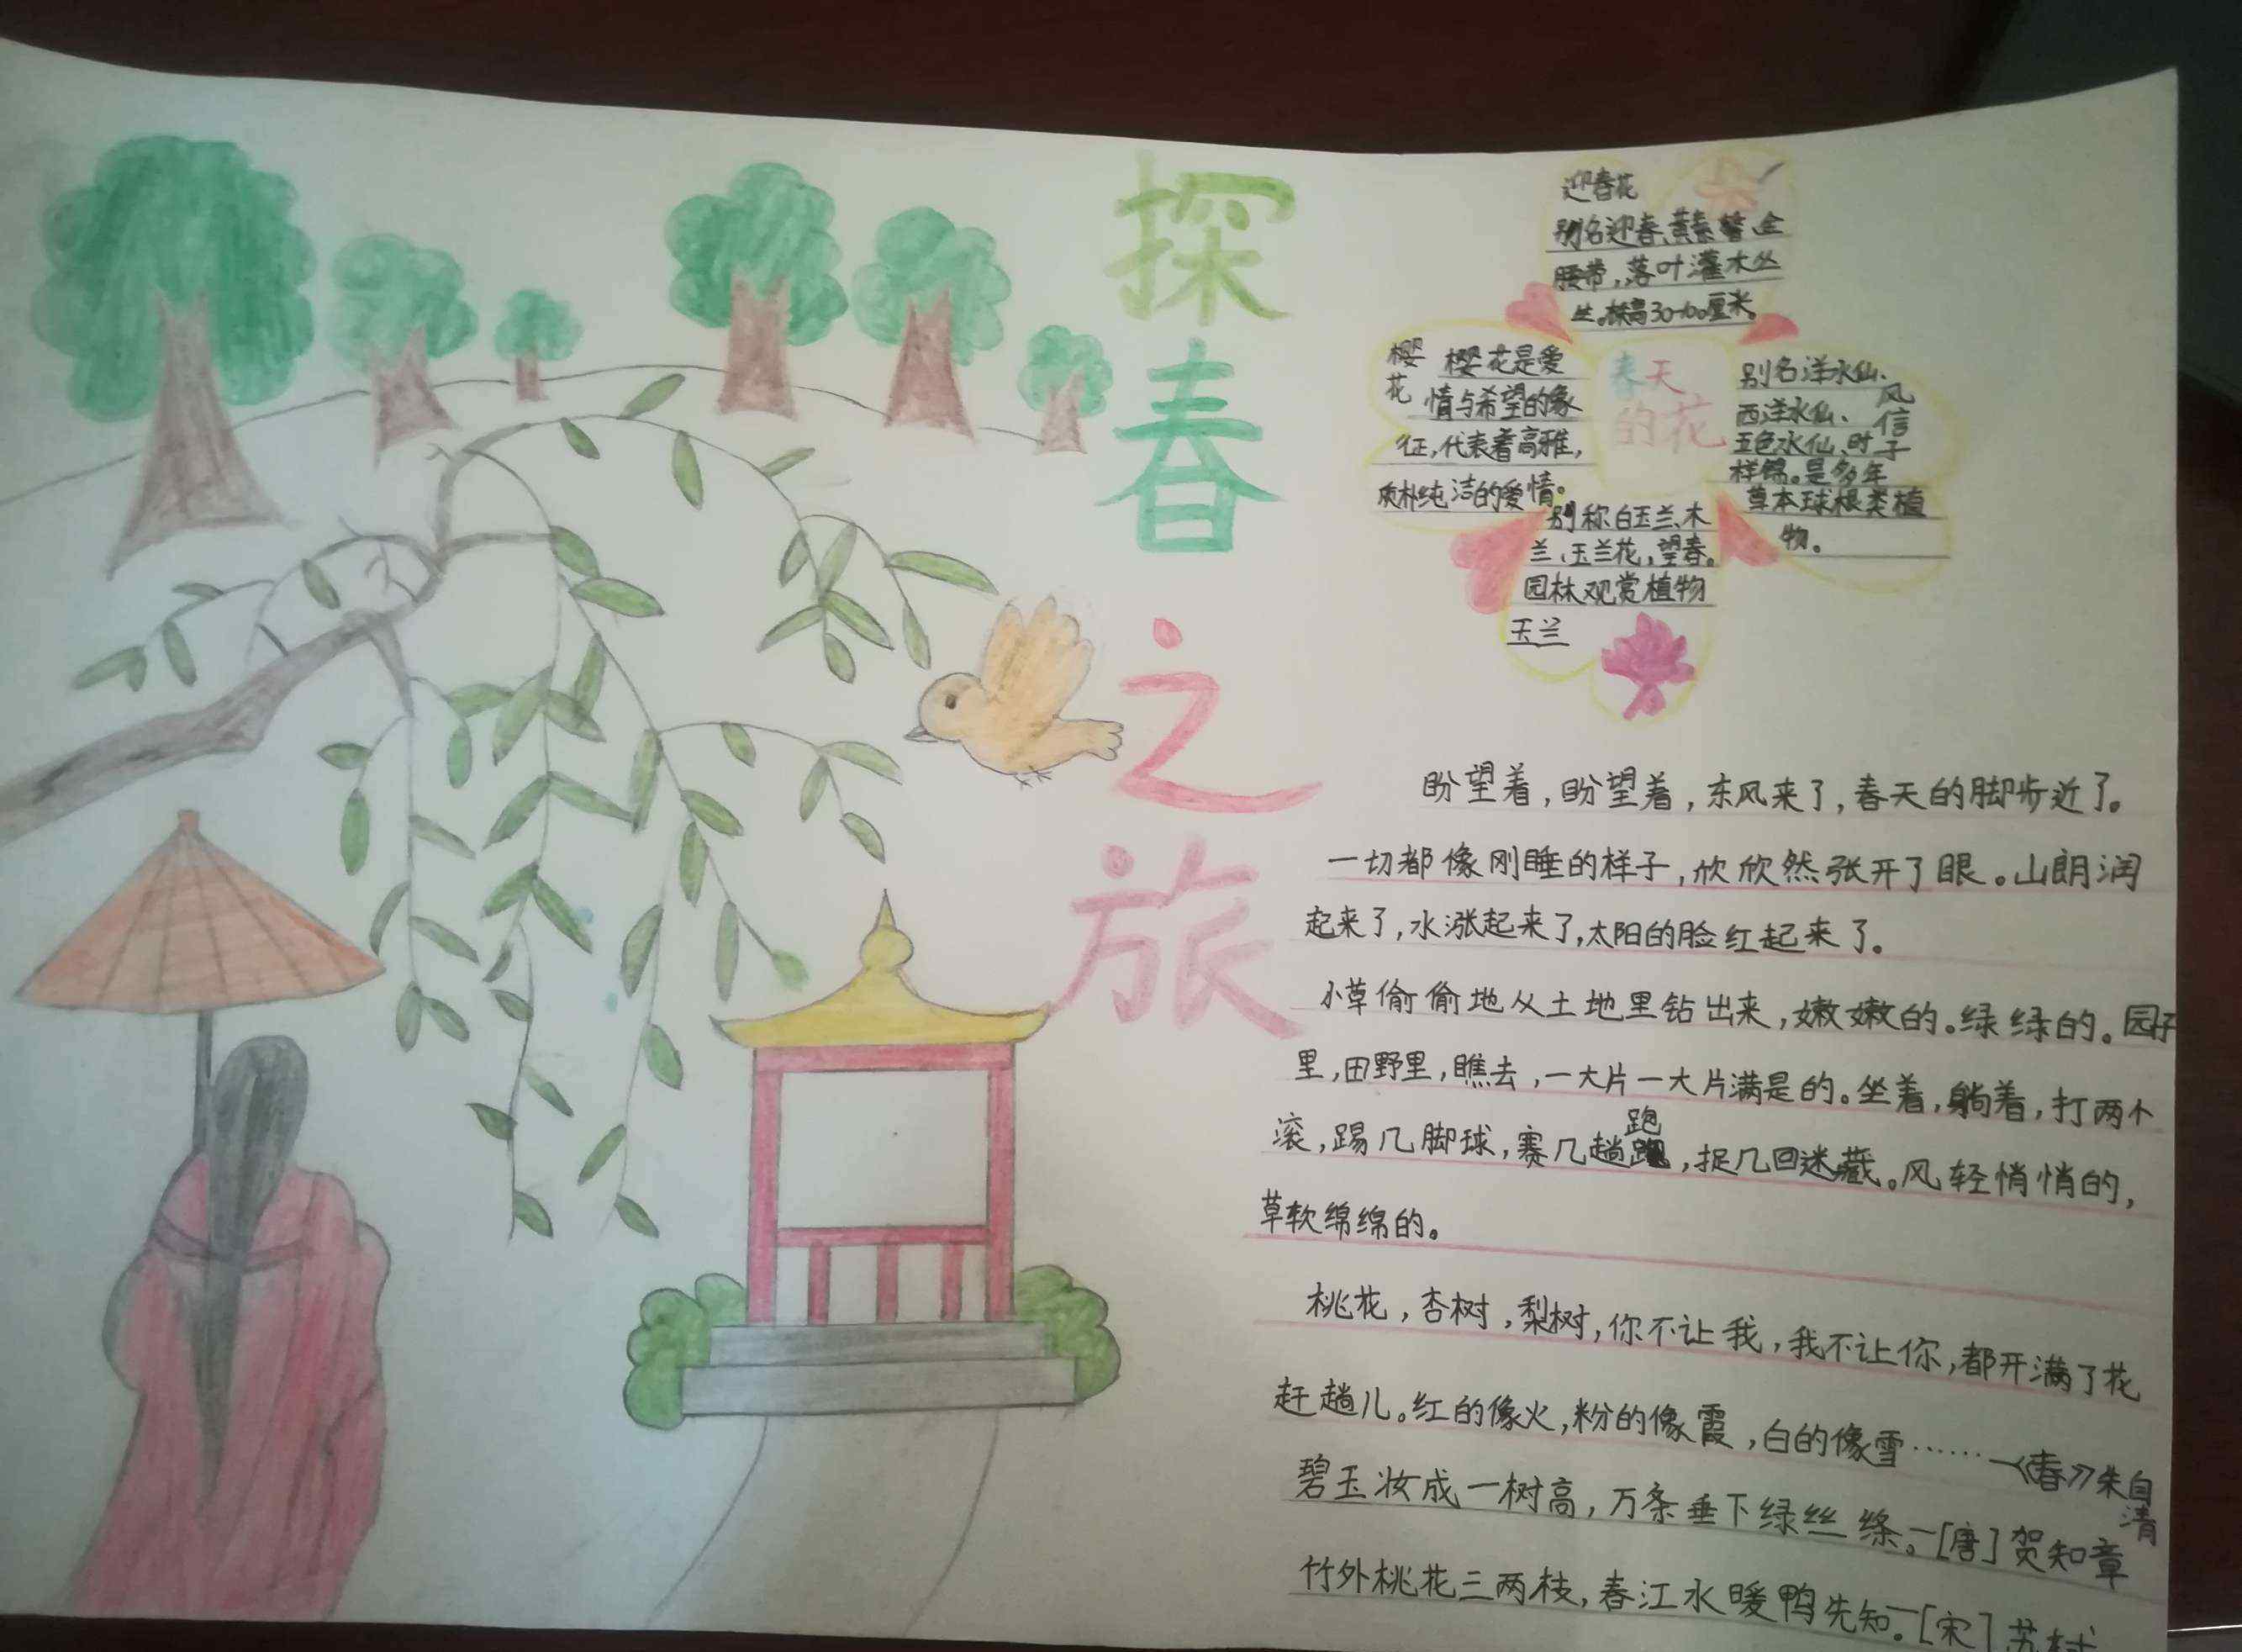 探春之旅
迎春花
别名迎春、黄素馨、金
腰带,落叶灌木丛
生。株高30-100厘米。
春天
的花
樱花
樱花是爱
情与希望的象
征,代表着高雅,
质朴纯洁的爱情。
风信子
别名洋水仙、
西洋水仙、
五色水仙、时
样锦。是多年
草本球根类植
物。
别称白玉兰、木
兰、玉兰花,望春。
园林观赏植物
玉兰
盼望着,盼望着,东风来了,春天的脚步近了。
一切都像刚睡的样子,欣欣然张开了眼。山朗润
起来了,水涨起来了,太阳的脸红起来了。
小草偷偷地从土地里钻出来,嫩嫩的。绿绿的。园子
里,田野里,瞧去,一大片一大片满是的。坐着,躺着,打两个
滚,踢几脚球,赛几趟跑,捉几回迷藏。风轻悄悄的,
草软绵绵的。
桃花,杏树,梨树,你不让我,我不让你,都开满了花
赶趟儿。红的像火,粉的像霞,白的像雪……—《春》朱自清
碧玉妆成一树高,万条垂下绿丝绦。—[唐]贺知章
竹外桃花三两枝,春江水暖鸭先知。—[宋]苏轼